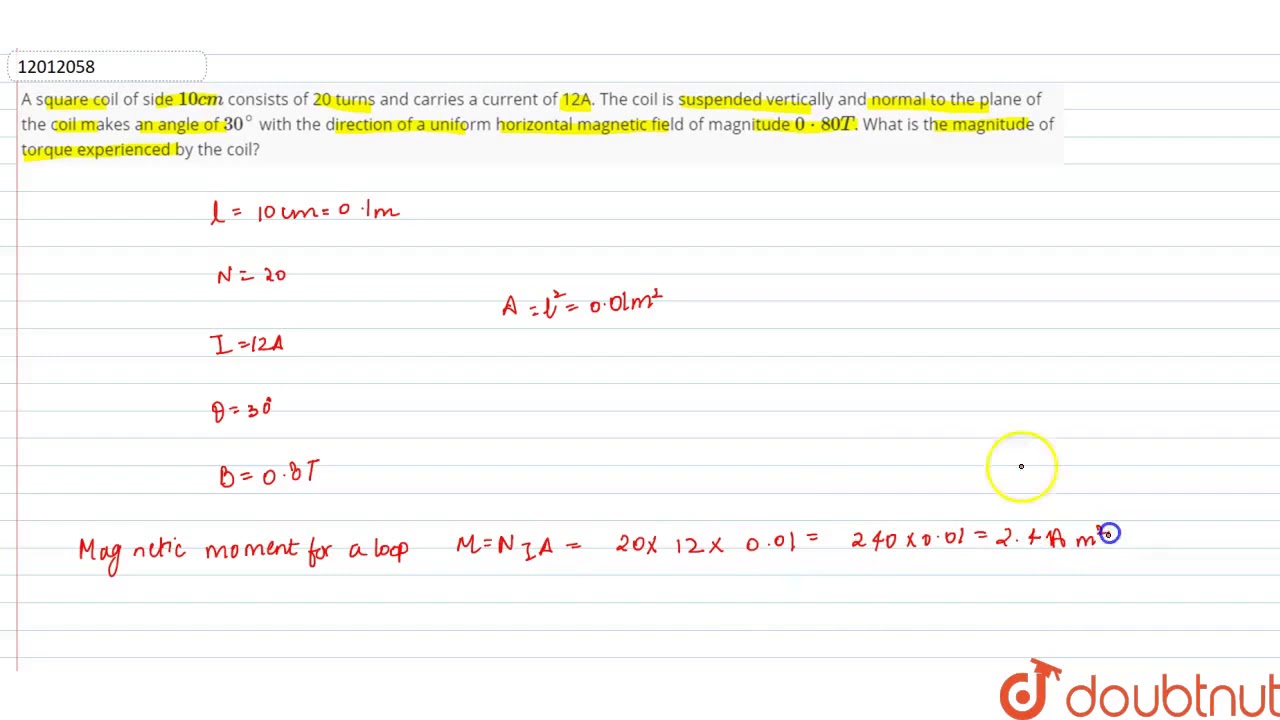 12012058
A square coil of side 10cm consists of 20 turns and carries a current of 12A. The coil is suspended vertically and normal to the plane of
the coil makes an angle of 30° with the direction of a uniform horizontal magnetic field of magnitude 0·80T. What is the magnitude of
torque experienced by the coil?
l = 10cm = 0.1m
N = 20
A = l² = 0.01m²
I = 12A
θ = 30°
B = 0.8T
Magnetic moment for a loop M = NIA = 20 × 12 × 0.01 = 240 × 0.01 = 2.4 A m²
doubtnut